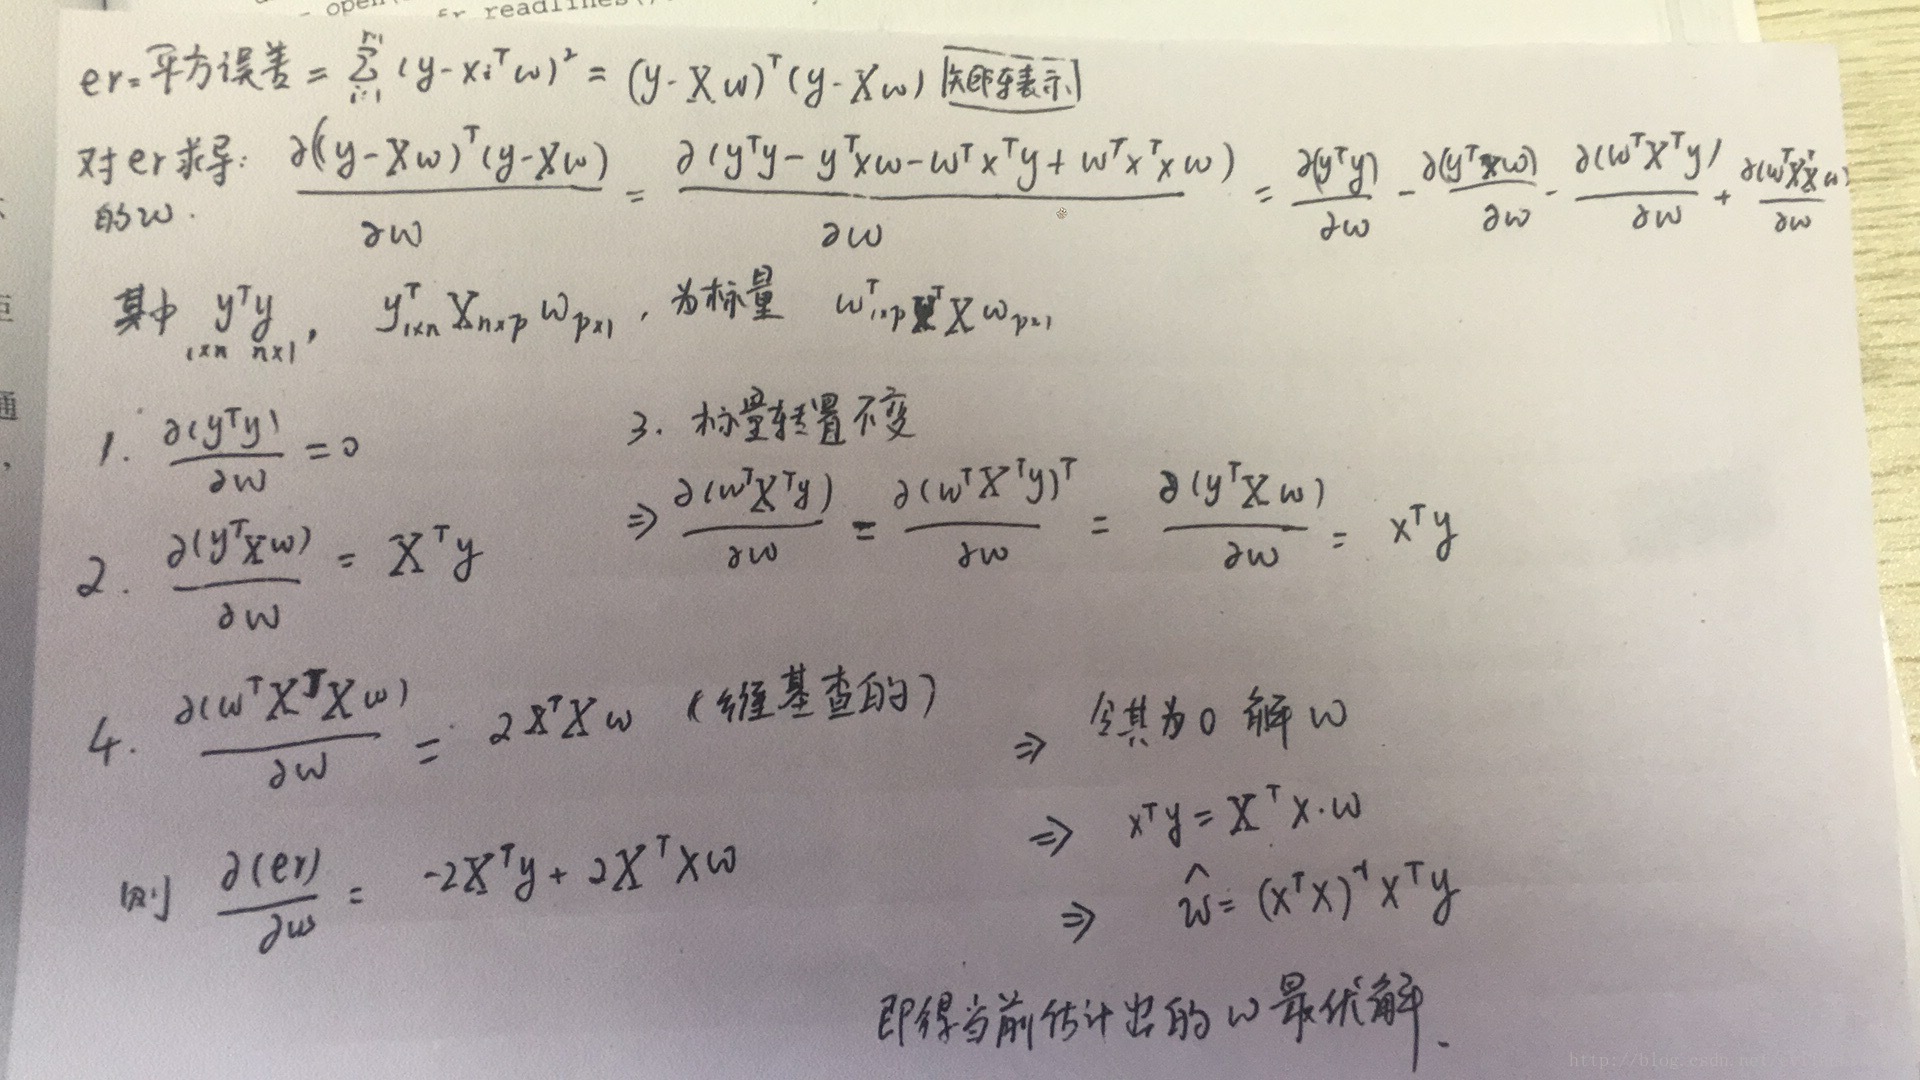 open(
fr.readlines()
er = 平方误差 = Σ(i=1..m) (y - xi^T w)² = (y - Xw)^T (y - Xw) 矩阵表示
对er求导: ∂((y - Xw)^T (y - Xw)) / ∂w = ∂(y^T y - y^T x w - w^T x^T y + w^T x^T x w) / ∂w = ∂(y^T y)/∂w - ∂(y^T X w)/∂w - ∂(w^T X^T y)/∂w + ∂(w^T X^T X w)/∂w
的w.
其中 y^T y (1×n n×1), y^T_{1×n} X_{n×p} w_{p×1}, 为标量 w^T_{1×p} X^T X w_{p×1}
1. ∂(y^T y)/∂w = 0
2. ∂(y^T X w)/∂w = X^T y
3. 标量转置不变
⇒ ∂(w^T X^T y)/∂w = ∂(w^T X^T y)^T/∂w = ∂(y^T X w)/∂w = x^T y
4. ∂(w^T X^T X w)/∂w = 2X^T X w (维基查的)
则 ∂(er)/∂w = -2X^T y + 2X^T X w
⇒ 令其为0 解w
⇒ x^T y = X^T x · w
⇒ ŵ = (x^T x)^-1 x^T y
即得当前估计出的w最优解.
http://blog.csdn.net/